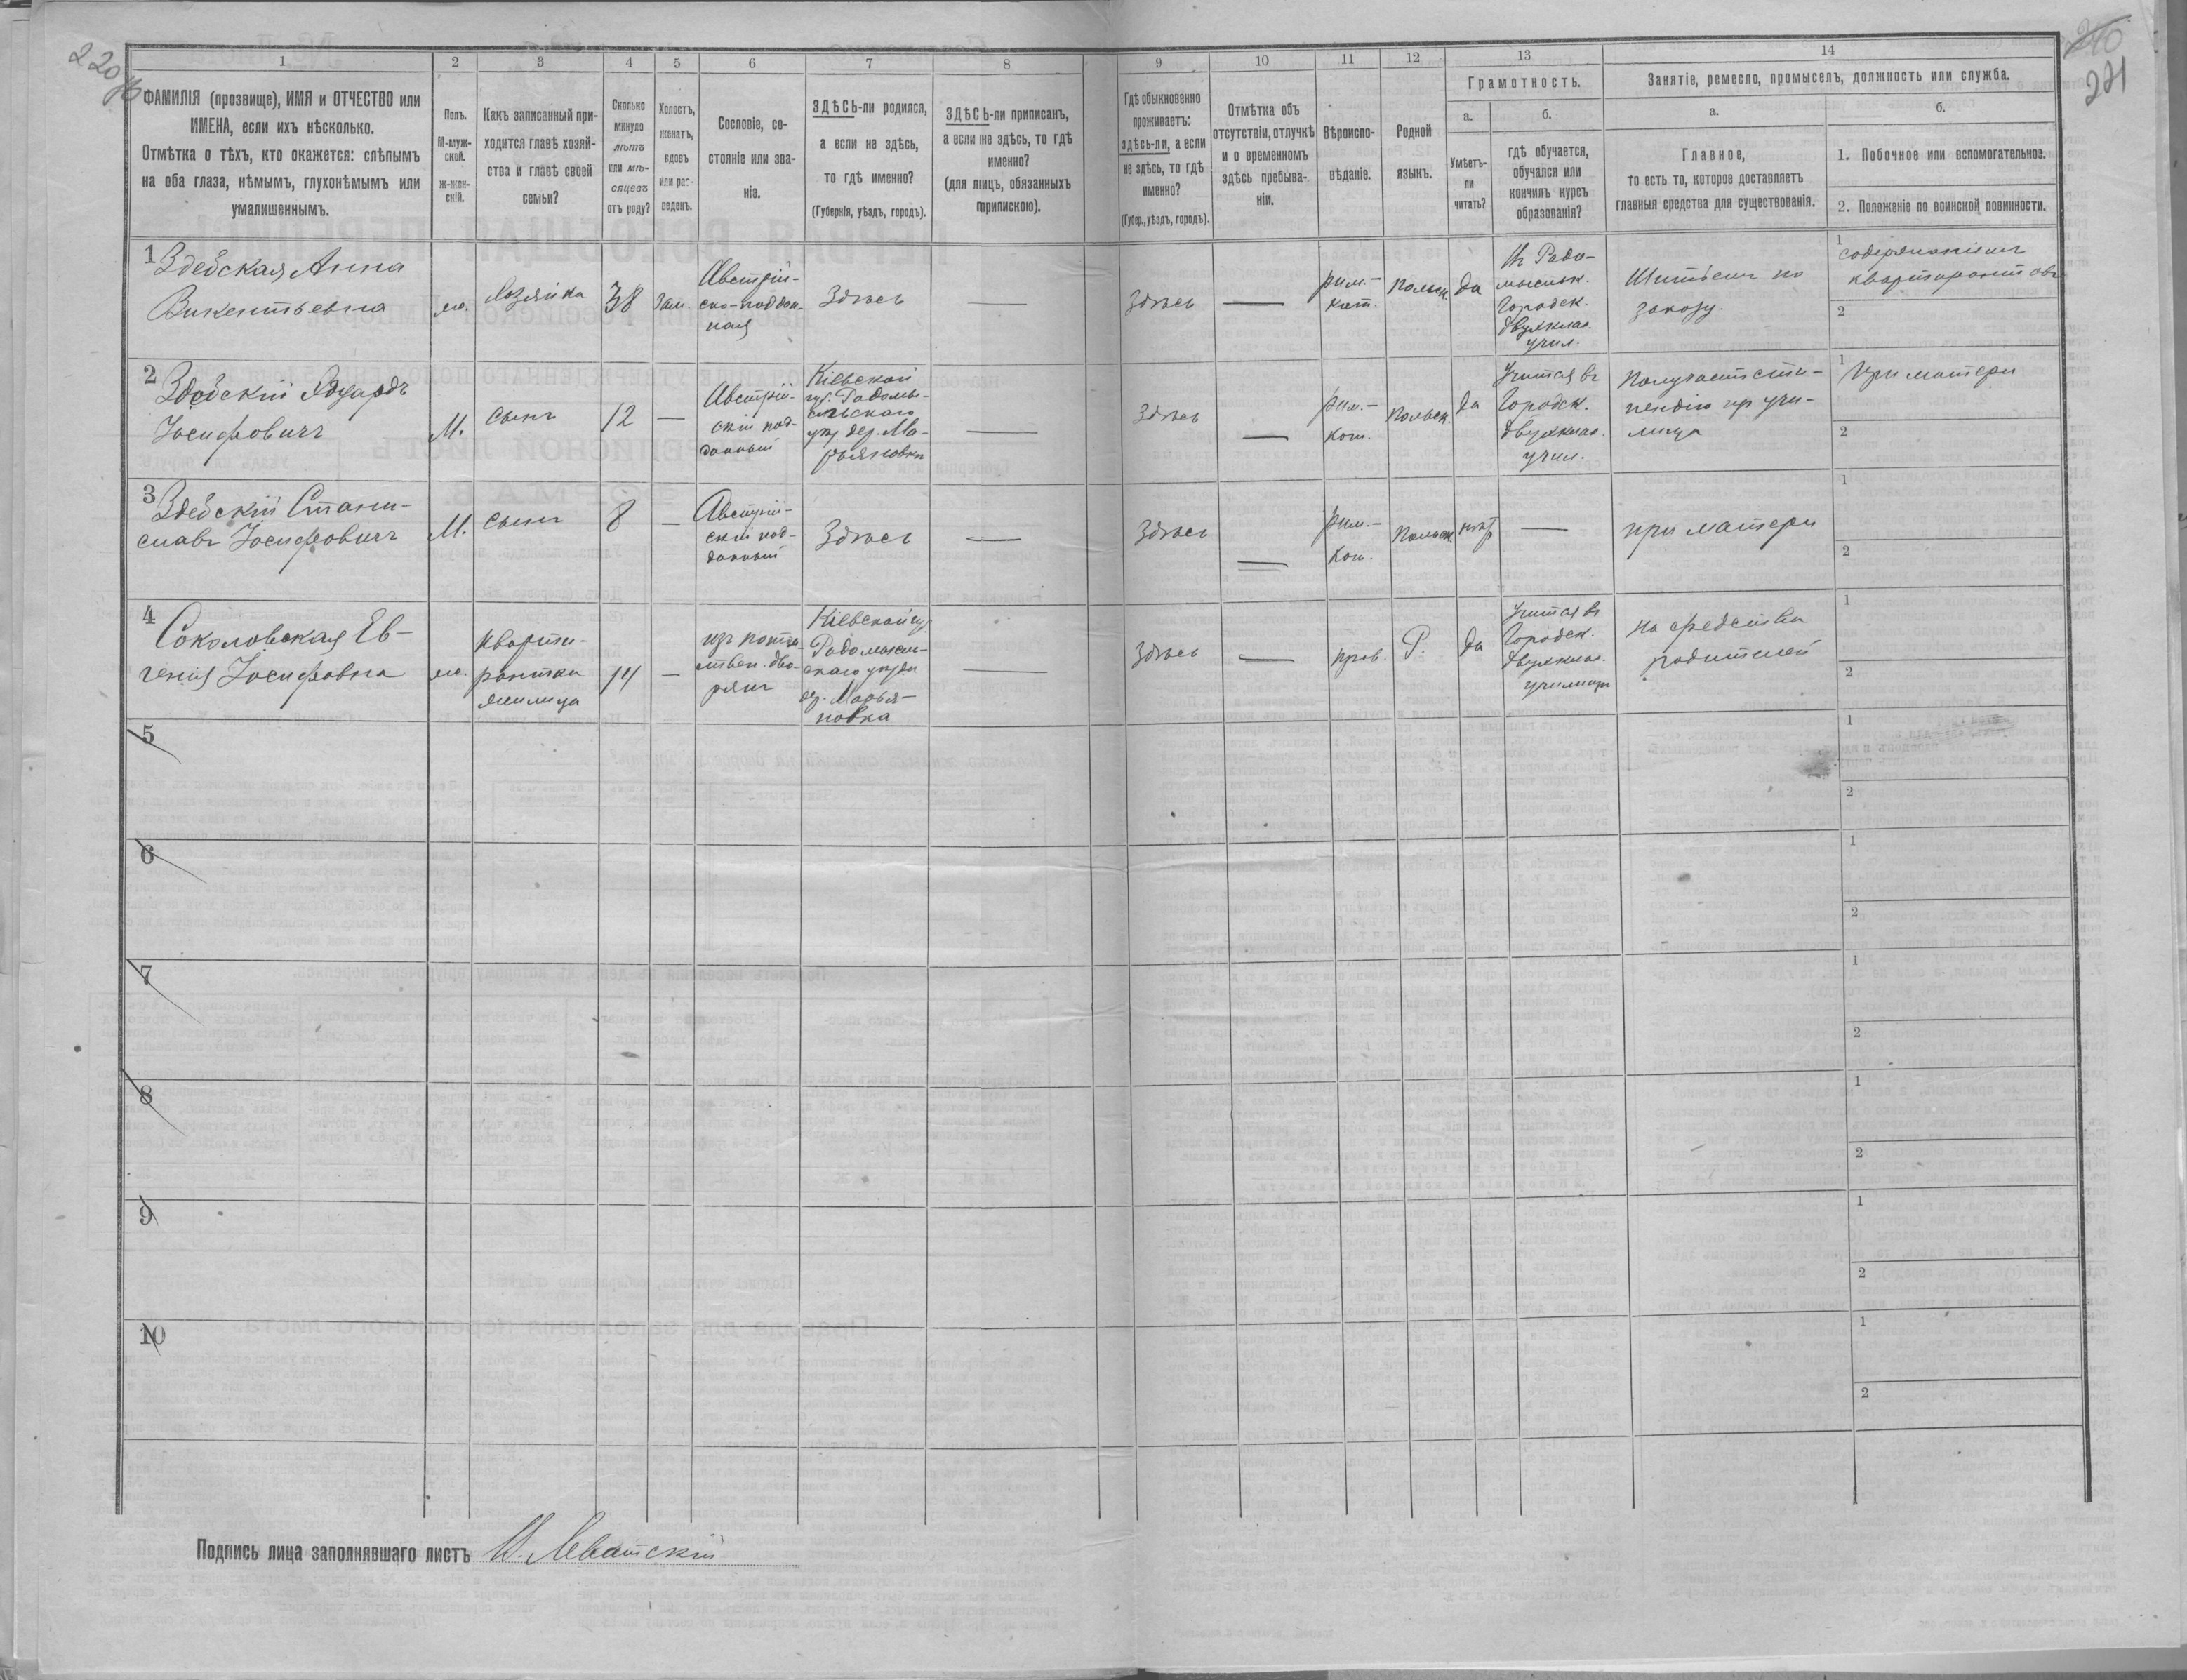 220об
210
221
1
2
3
4
5
6
7
8
9
10
11
12
13
14
ФАМИЛІЯ (прозвище), ИМЯ и ОТЧЕСТВО или
ИМЕНА, если ихъ нѣсколько.
Отмѣтка о тѣхъ, кто окажется: слѣпымъ
на оба глаза, нѣмымъ, глухонѣмымъ или
умалишеннымъ.
Полъ.
М-муж-
ской.
Ж-жен-
скій.
Какъ записанный при-
ходится главѣ хозяй-
ства и главѣ своей
семьи?
Сколько
минуло
лѣтъ
или мѣ-
сяцевъ
отъ роду?
Холостъ,
женатъ,
вдовъ
или раз-
веденъ.
Сословіе, со-
стояніе или зва-
ніе.
ЗДѢСЬ-ли родился,
а если не здѣсь,
то гдѣ именно?
(Губернія, уѣздъ, городъ).
ЗДѢСЬ-ли приписанъ,
а если не здѣсь, то гдѣ
именно?
(для лицъ, обязанныхъ
припискою).
Гдѣ обыкновенно
проживаетъ:
здѣсь-ли, а если
не здѣсь, то гдѣ
именно?
(Губер., уѣздъ, городъ).
Отмѣтка объ
отсутствіи, отлучкѣ
и о временномъ
здѣсь пребыва-
ніи.
Вѣроиспо-
вѣданіе.
Родной
языкъ.
Грамотность.
а.
Умѣетъ-
ли
читать?
б.
гдѣ обучается,
обучался или
кончилъ курсъ
образованія?
Занятіе, ремесло, промыселъ, должность или служба.
а.
Главное,
то есть то, которое доставляетъ
главныя средства для существованія.
б.
1. Побочное или вспомогательное.
2. Положеніе по воинской повинности.
1
Здебская Анна
Викентьевна
ж.
Хозяйка
38
Зам.
Австрій-
ско-поддан-
ная
Здѣсь
—
Здѣсь
—
рим.-
кат.
Польск.
да
въ Радо-
мысльск.
Городск.
двухклас.
учил.
Шитьемъ по
заказу.
1
содержаніемъ
квартирантовъ
2
2
Здебскій Эдуардъ
Іосифовичъ
М.
сынъ
12
—
Австрій-
скій под-
данный
Кіевской
губ. Радомы-
сльскаго
уѣз. дер. Ма-
рьяновкѣ
—
Здѣсь
—
рим.-
кат.
Польск.
да
Учится въ
Городск.
двухклас.
учил.
Получаетъ сти-
пендію пр учи-
лища
1
при матери
2
3
Здебскій Стани-
славъ Іосифовичъ
М.
сынъ
8
—
Австрій-
скій под-
данный
Здѣсь
—
Здѣсь
—
рим.-
кат.
Польск.
нѣтъ
—
при матери
1
2
4
Соколовская Ев-
генія Іосифовна
ж.
кварти-
рантка
жилица
14
—
изъ потом-
ствен. дво-
рянъ
Кіевской губ
Радомысль-
скаго уѣзда
дер. Марья-
новка
—
Здѣсь
—
прав.
Р.
да
Учится въ
Городск.
двухклас.
училищѣ
на средства
родителей
1
2
5
1
2
6
1
2
7
1
2
8
1
2
9
1
2
10
1
2
Подпись лица заполнявшаго листъ